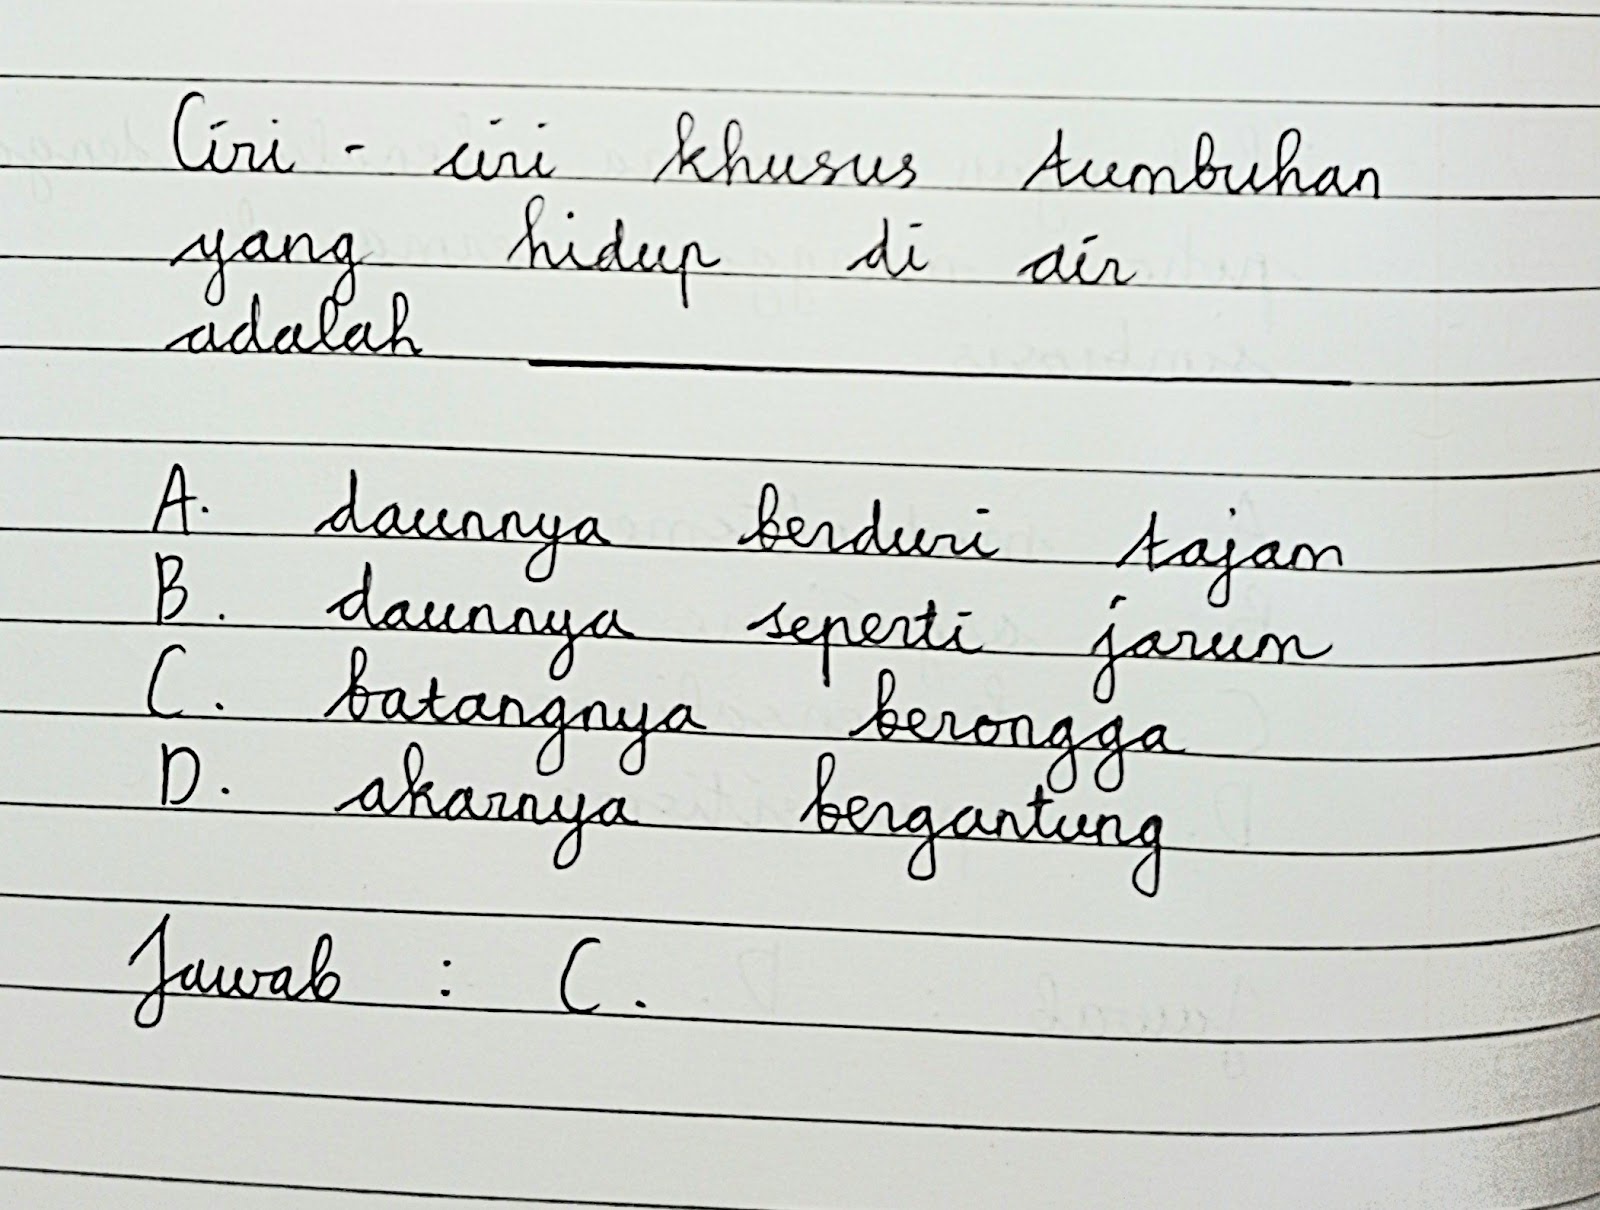 Ciri - ciri khusus tumbuhan
yang hidup di air
adalah
A. daunnya berduri tajam
B. daunnya seperti jarum
C. batangnya berongga
D. akarnya bergantung
Jawab : C.